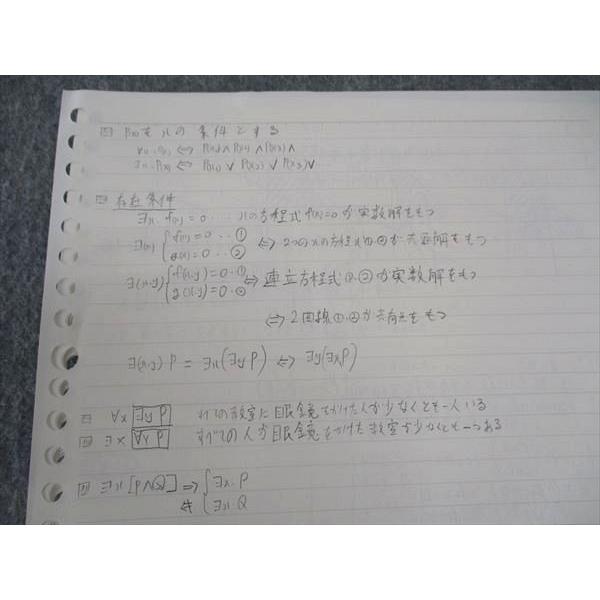 P(x)をxの条件とする
∀x. P(x) ⇔ P(x₁) ∧ P(x₂) ∧ P(x₃) ∧
∃x. P(x) ⇔ P(x₁) ∨ P(x₂) ∨ P(x₃) ∨
存在条件
∃x. f(x) = 0 ‥ xの方程式 f(x)=0 が実数解をもつ
∃(x) { f(x) = 0 ‥ ① g(x) = 0 ‥ ② ⇔ 2つのxの方程式①,②が共通解をもつ
∃(x,y) { f(x,y) = 0 ‥ ① g(x,y) = 0 ‥ ② ⇔ 連立方程式①,②が実数解をもつ
⇔ 2曲線①,②が共有点をもつ
∃(x,y) P = ∃x(∃y P) ⇔ ∃y(∃x P)
∀x ∃y P の教室に眼鏡をかけた人が少なくとも一人いる
∃x ∀y P すべての人が眼鏡をかけた教室が少なくとも一つある
∃x [P∧Q] ⇒ { ∃x. P
⇍ ∃x. Q